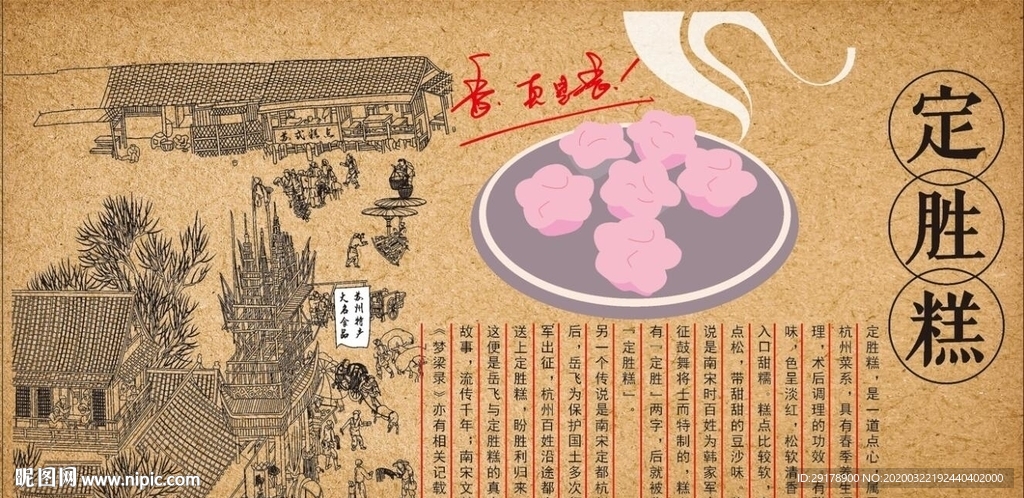 定胜糕
香.真是香!
苏式糕点
苏州特产
大名食品
定胜糕，是一道点心，属
杭州菜系，具有春季养生调
理，术后调理的功效，有
味，色呈淡红，松软清香，
入口甜糯　糕点比较软，
点松，带甜甜的豆沙味，
说是南宋时百姓为韩家军
征鼓舞将士而特制的，糕
有「定胜」两字，后就被
「定胜糕」。
另一个传说是南宋定都杭
后，岳飞为保护国土多次
军出征，杭州百姓沿途都
送上定胜糕，盼胜利归来
这便是岳飞与定胜糕的真
故事，流传千年；南宋文
《梦梁录》亦有相关记载
昵图网 www.nipic.com
ID:29178900 NO:20200322192440402000